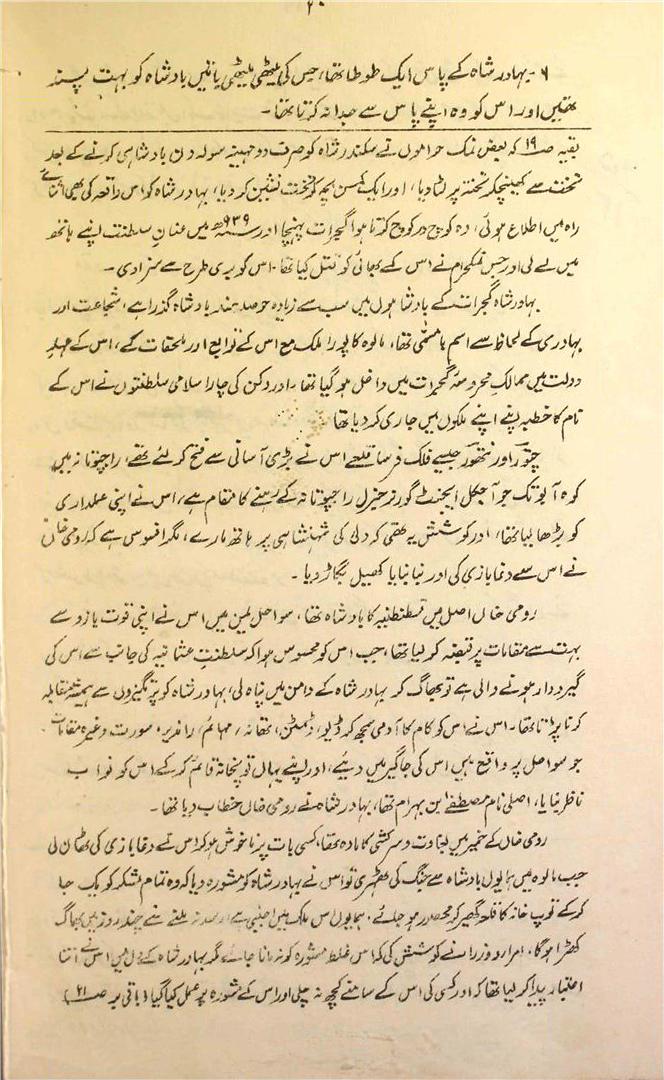 ۲۰
۶- بہادر شاہ کے پاس ایک طوطا تھا، جس کی میٹھی میٹھی باتیں بادشاہ کو بہت پسند
تھیں اور اس کو وہ اپنے پاس سے جدا نہ کرتا تھا۔
بقیہ صـ۱۹ کہ بعض نمک حراموں نے سکندر شاہ کو صرف دو مہینہ سولہ دن بادشاہی کرنے کے بعد
تخت سے کھینچکر تختہ پر لٹا دیا، اور ایک کمسن بچہ کو تخت نشین کر دیا، بہادر شاہ کو اس واقعہ کی بھی اثنائے
راہ میں اطلاع ہوئی، وہ کوچ در کوچ کرتا ہوا گجرات پہنچا اور ۹۳۹ھ میں عنانِ سلطنت اپنے ہاتھ
میں لے لی اور جس نمکحرام نے اس کے بھائی کو قتل کیا تھا۔ اس کو بری طرح سے سزا دی۔
بہادر شاہ گجرات کے بادشاہوں میں سب سے زیادہ حوصلہ مند بادشاہ گذرا ہے، شجاعت اور
بہادری کے لحاظ سے اسم بامسمٰی تھا، مالوہ کا پورا ملک مع اس کے توابع اور ملحقات کے، اس کے عہد
دولت میں ممالک محروسہ گجرات میں داخل ہو گیا تھا۔ اور دکن کی چار اسلامی سلطنتوں نے اس کے
نام کا خطبہ اپنے اپنے ملکوں میں جاری کر دیا تھا
چتور اور رنتھور جیسے فلک فرسا قلعے اس نے بڑی آسانی سے فتح کر لئے تھے، راجپوتانہ میں
کوہ آبو تک جو آجکل ایجنٹ گورنر جنرل راجپوتانہ کے رہنے کا مقام ہے، اس نے اپنی عملداری
کو بڑھا لیا تھا، اور کوشش یہ تھی کہ دلی کی شہنشاہی پر ہاتھ مارے، مگر افسوس ہے کہ رومی خاں
نے اس سے دغا بازی کی اور بنا بنایا کھیل بگاڑ دیا۔
رومی خاں اصل میں قسطنطنیہ کا بادشاہ تھا، سواحل یمن میں اس نے اپنی قوت بازو سے
بہت سے مقامات پر قبضہ کر لیا تھا، جب اس کو محسوس ہوا کہ سلطنت عثمانیہ کی جانب سے اس کی
گیر و دار ہونے والی ہے تو بھاگ کر بہادر شاہ کے دامن میں پناہ لی، بہادر شاہ کو پرتگیزوں سے ہمیشہ مقابلہ
کرنا پڑتا تھا۔ اس نے اس کو کام کا آدمی سمجھ کر ڈیو، دمن، تھانہ، مہائم، راندیر، سورت وغیرہ مقامات
جو سواحل پر واقع ہیں اس کی جاگیر میں دیئے، اور اپنے یہاں توپخانہ قائم کر کے اس کو نواب
ناظر بنایا، اصلی نام مصطفےٰ بن بہرام تھا، بہادر شاہ نے رومی خاں خطاب دیا تھا۔
رومی خاں کے خمیر میں بغاوت و سرکشی کا مادہ تھا، کسی بات پر ناخوش ہو کر اس نے دغا بازی کی ٹھان لی
جب مالوہ میں ہمایوں بادشاہ سے جنگ کی ٹھہری تو اس نے بہادر شاہ کو مشورہ دیا کہ وہ تمام لشکر کو یک جا
کر کے توپ خانہ کا قلعہ گھیر کر محصور ہو جائے۔ ہمایوں اس ملک میں اجنبی ہے رسد نہ ملنے سے چند روز میں بھاگ
کھڑا ہو گا، امراء وزراء نے کوشش کی کہ اس غلط مشورہ کو نہ مانا جائے، مگر بہادر شاہ کے دل میں اس نے اتنا
اعتبار پیدا کر لیا تھا کہ اور کسی کی اس کے سامنے کچھ نہ چلی اور اس کے مشورہ پر عمل کیا گیا (باقی بر صـ۲۱)